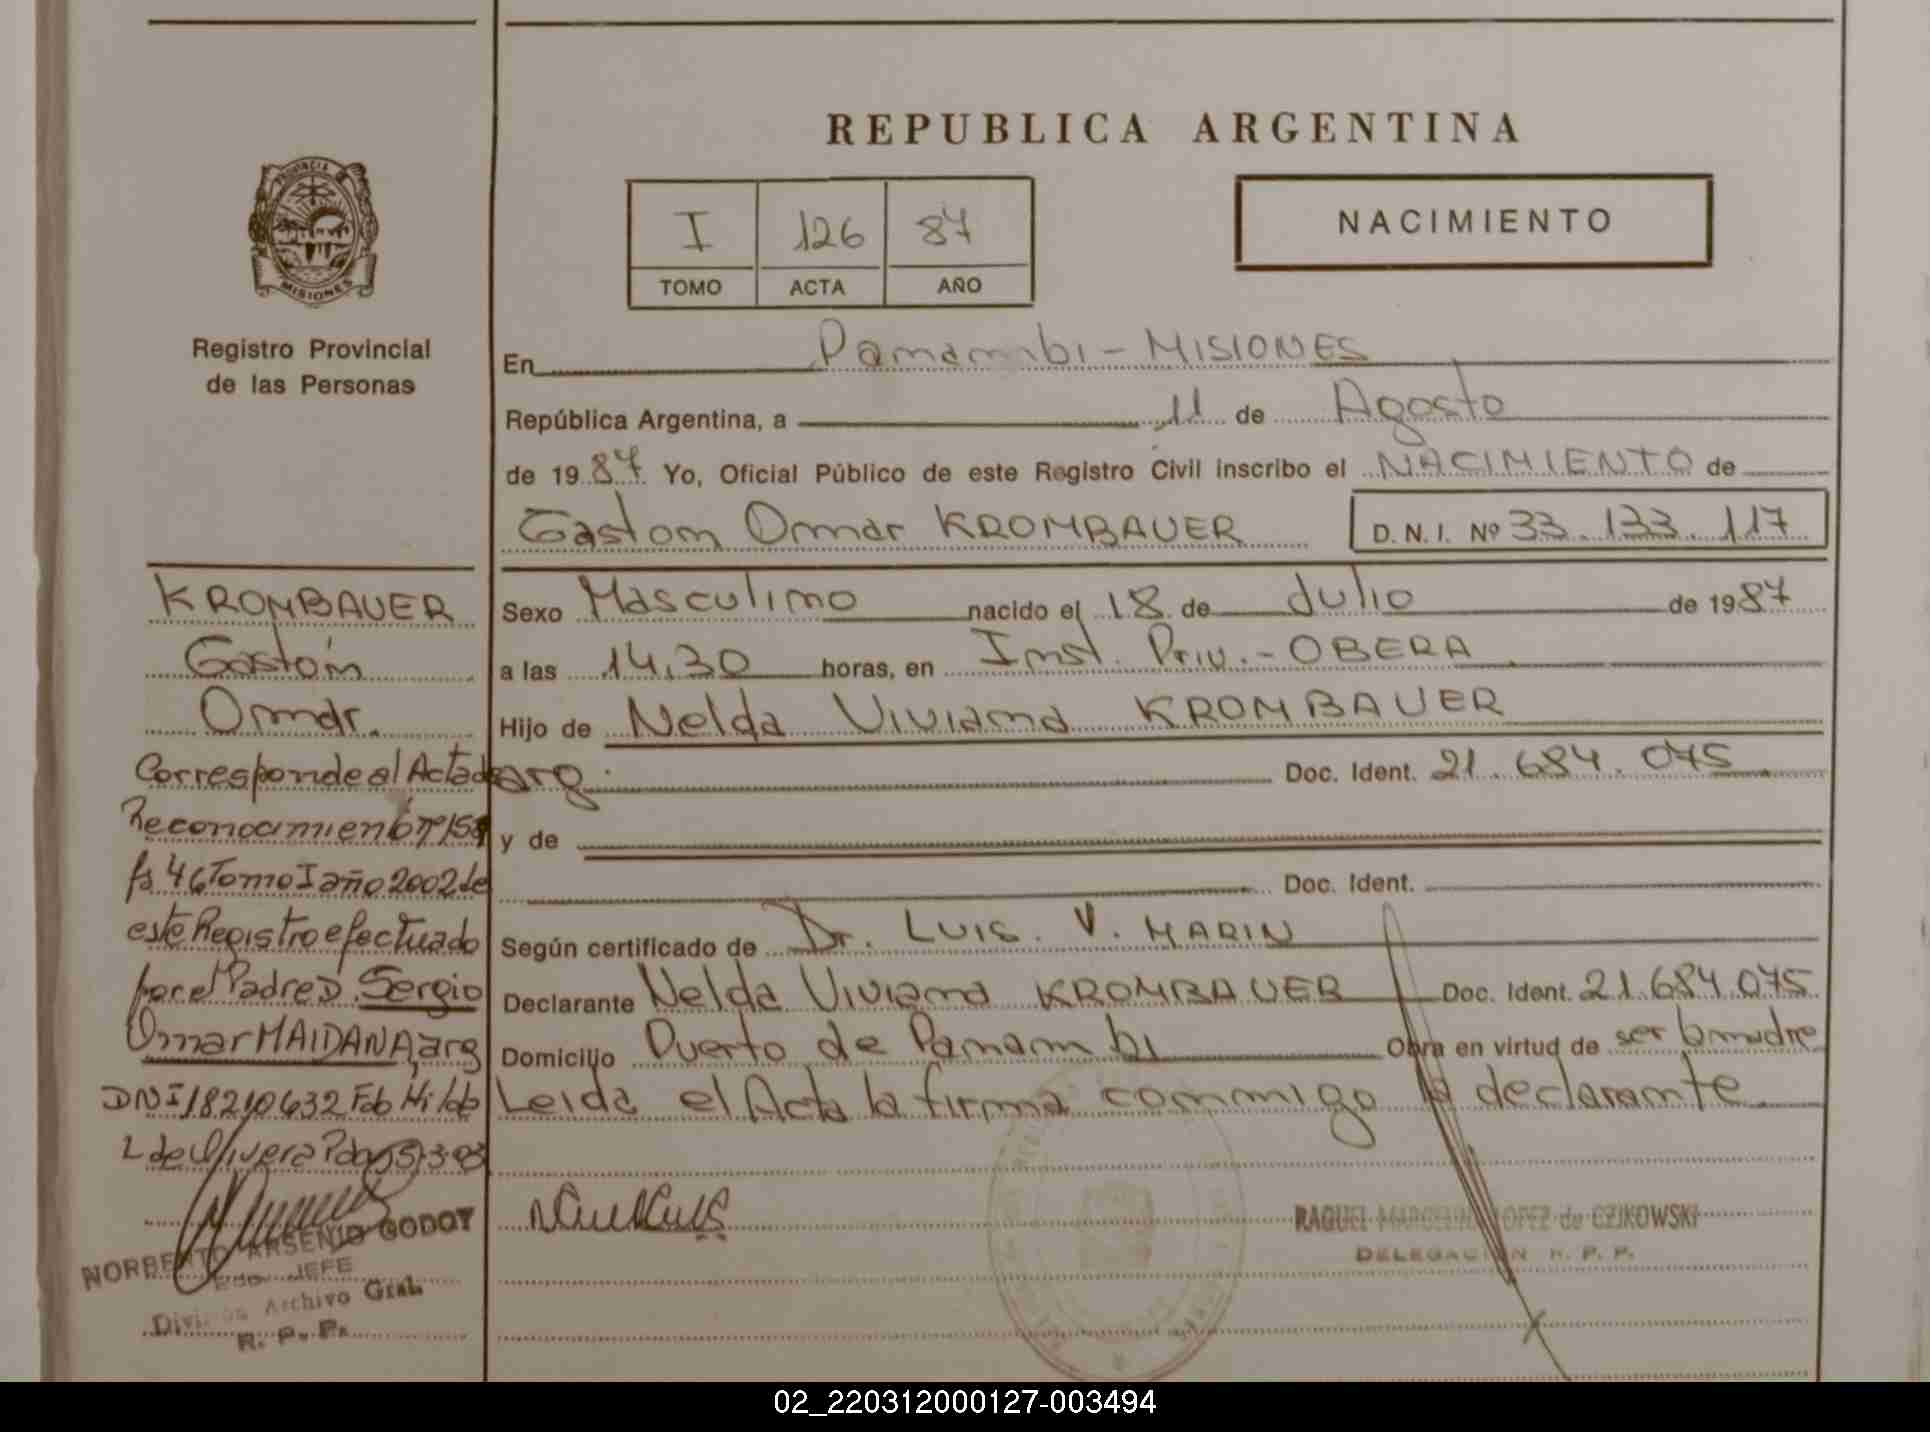 REPUBLICA ARGENTINA
PROVINCIA
MISIONES
Registro Provincial
de las Personas
I 126 87
TOMO ACTA AÑO
NACIMIENTO
En Panambi - MISIONES
República Argentina, a 11 de Agosto
de 1987 Yo, Oficial Público de este Registro Civil inscribo el NACIMIENTO de
Gaston Omar KROMBAUER D. N. I. Nº 33.133.117
Sexo Masculino nacido el 18 de Julio de 1987
a las 14,30 horas, en Inst. Priv. - OBERA
Hijo de Nelda Viviana KROMBAUER
arg. Doc. Ident. 21.684.075
y de
Doc. Ident.
Según certificado de Dr. LUIS. V. MARIN
Declarante Nelda Viviana KROMBAUER Doc. Ident. 21.684.075
Domicilio Puerto de Panambi Obra en virtud de ser la madre
Leida el Acta la firma conmigo la declarante
RAQUEL MARCELINA LOPEZ de CZIKOWSKI
DELEGACION R. P. P.
KROMBAUER
Gastón
Omar.
Corresponde al Acta de
Reconocimiento nº
fs 46 Tomo I año 2002 de
este Registro efectuado
por el Padre D. Sergio
Omar MAIDANA, arg
DNI 18210632 Hilda
L de Olivera
NORBERTO ARSENIO GODOY
JEFE
División Archivo Gral.
R. P. P.
02_220312000127-003494